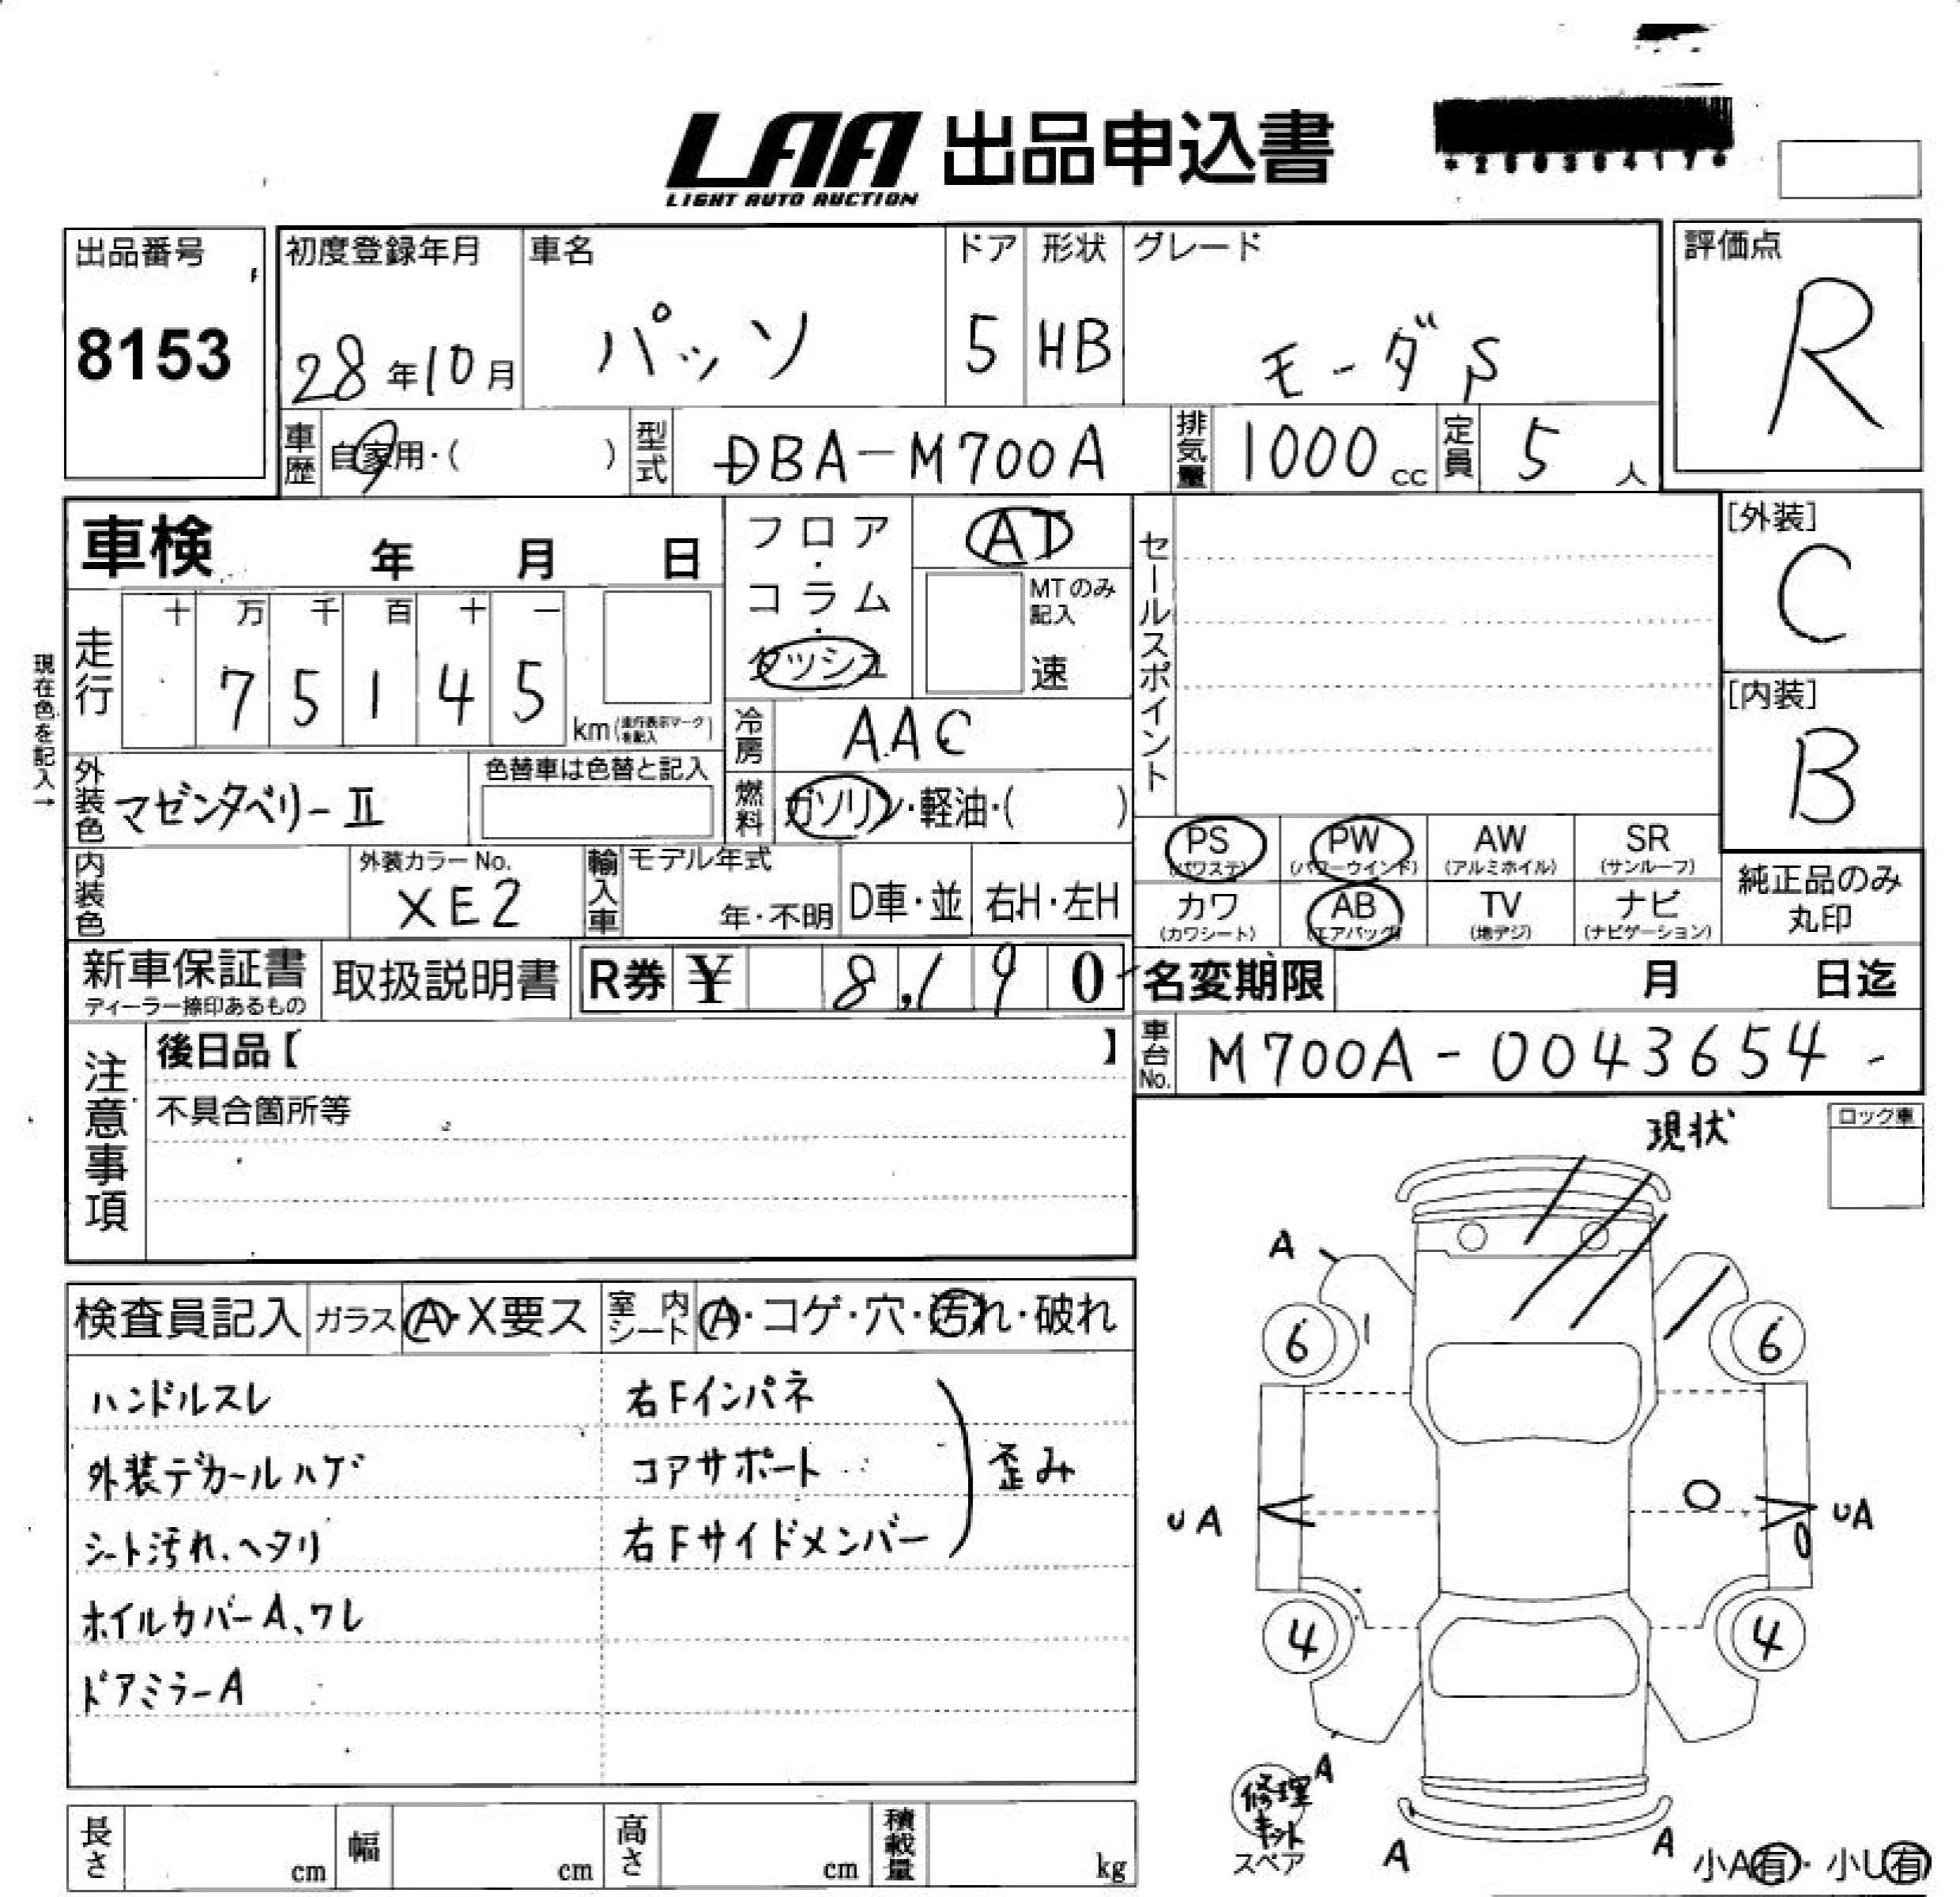 LAA 出品申込書
LIGHT AUTO AUCTION
出品番号
8153
初度登録年月
28年10月
車名
パッソ
ドア
5
形状
HB
グレード
モーダS
評価点
R
車歴 自家用・( )
型式 DBA-M700A
排気量 1000 cc
定員 5 人
車検 年 月 日
フロア・コラム・ダッシュ
AT
MTのみ記入
速
セールスポイント
[外装]
C
[内装]
B
現在色を記入→
走行
十 万 千 百 十 一
7 5 1 4 5
km (走行表示マークを記入)
冷房 AAC
外装色 マゼンタベリーⅡ
色替車は色替と記入
燃料 ガソリン・軽油・( )
PS (パワステ)
PW (パワーウインド)
AW (アルミホイル)
SR (サンルーフ)
カワ (カワシート)
AB (エアバッグ)
TV (地デジ)
ナビ (ナビゲーション)
純正品のみ
丸印
内装色
外装カラーNo.
XE2
輸入車
モデル年式
年・不明
D車・並
右H・左H
新車保証書
ディーラー捺印あるもの
取扱説明書
R券 ¥ 8,190
名変期限 月 日迄
車台No. M700A-0043654
注意事項
後日品【 】
不具合箇所等
現状
ロック車
検査員記入
ガラス A・X要ス
室内シート A・コゲ・穴・汚れ・破れ
ハンドルスレ
右Fインパネ
外装デカールハゲ
コアサポート
歪み
シート汚れ、ヘタリ
右Fサイドメンバー
ホイルカバーA、ワレ
ドアミラーA
A
6
6
UA
UA
4
4
A
修理キット
スペア
A
A
小A有・小U有
長さ cm
幅 cm
高さ cm
積載量 kg